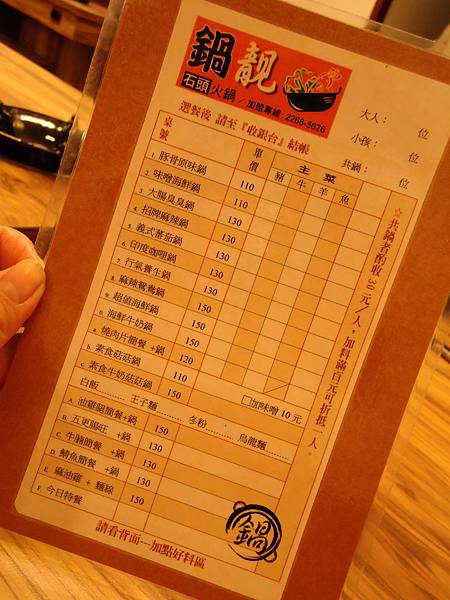 鍋靚
石頭火鍋／加盟專線：2268-5626
大人： 位
小孩： 位
共鍋： 位
選餐後 請至『收銀台』結帳
桌號 單價 主菜
豬 牛 羊 魚
1. 豚骨原味鍋 110
2. 味噌海鮮鍋 110
3. 大腸臭臭鍋 130
4. 招牌麻辣鍋 130
5. 義式蕃茄鍋 130
6. 印度咖哩鍋 130
7. 行氣養生鍋 130
8. 麻辣鴛鴦鍋 150
9. 超值海鮮鍋 150
0. 海鮮牛奶鍋 150
a. 燒肉片簡餐+鍋 120
b. 素食菇菇鍋 110
c. 素食牛奶菇菇鍋 150
□加味噌10元
白飯 王子麵 冬粉 烏龍麵
A. 油雞腿簡餐+鍋 150
B. 五更腸旺 +鍋 130
C. 牛腩簡餐 +鍋 130
D. 鯖魚簡餐 +鍋 130
E. 麻油雞 + 麵線 150
F. 今日特餐
請看背面---加點好料區
鍋
☆共鍋者酌收30元／人，加料滿百元可折抵一人。